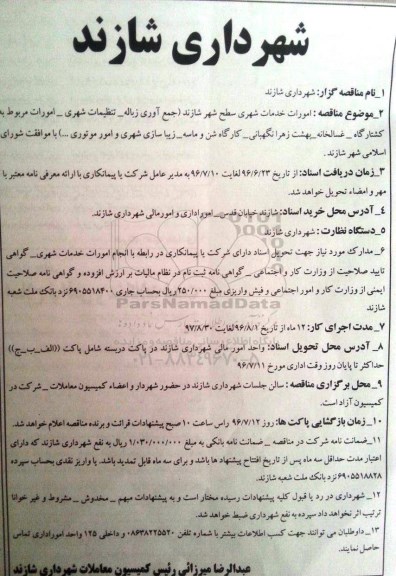 شهرداری شازند
۱_نام مناقصه گزار: شهرداری شازند
۲_موضوع مناقصه : امورات خدمات شهری سطح شهر شازند (جمع آوری زباله_ تنظیمات شهری _ امورات مربوط به
کشتارگاه _غسالخانه_بهشت زهرا نگهبانی_ کارگاه شن و ماسه_ زیبا سازی شهری و امور موتوری ...) با موافقت شورای
اسلامی شهر شازند .
۳_زمان دریافت اسناد: از تاریخ ۹۶/۶/۲۳ لغایت ۹۶/۷/۱۰ به مدیر عامل شرکت یا پیمانکاری با ارائه معرفی نامه معتبر با
مهر و امضاء تحویل خواهد شد.
۴_ آدرس محل خرید اسناد: شازند خیابان قدس_ امور اداری و امور مالی شهرداری شازند.
۵_دستگاه نظارت : شهرداری شازند
۶_ مدارک مورد نیاز جهت تحویل اسناد دارای شرکت یا پیمانکاری در رابطه با انجام امورات خدمات شهری_ گواهی
تایید صلاحیت از وزارت کار و اجتماعی _ گواهی نامه ثبت نام در نظام مالیات بر ارزش افزوده و گواهی نامه صلاحیت
ایمنی از وزارت کار و امور اجتماعی و فیش واریزی مبلغ ۲۵۰/۰۰۰ ریال بحساب جاری ۶۹۰۵۵۱۸۴۰۰ نزد بانک ملت شعبه
شازند
ParsNamadData
۷_مدت اجرای کار: ۱۲ ماه از تاریخ ۹۶/۸/۱ لغایت ۹۷/۸/۳۰
۸_ آدرس محل تحویل اسناد: واحد امور مالی شهرداری شازند در پاکت دربسته شامل پاکت ((الف_ب_ج))
۰۲۱-۸۸۳۴۹۶۷۰
حداکثر تا پایان روز وقت اداری مورخ ۹۶/۷/۱۱
۹_محل برگزاری مناقصه : سالن جلسات شهرداری شازند در حضور شهردار و اعضاء کمیسیون معاملات _شرکت در
کمیسیون آزاد است.
۱۰_زمان بازگشایی پاکت ها: روز ۹۶/۷/۱۲ راس ساعت ۱۰ صبح پیشنهادات قرائت و برنده مناقصه اعلام خواهد شد.
۱۱_ضمانت نامه شرکت در مناقصه _ضمانت نامه بانکی به مبلغ ۱/۰۳۰/۰۰۰/۰۰۰ ریال به نفع شهرداری شازند که دارای
اعتبار مدت حداقل سه ماه پس از تاریخ افتتاح پیشنهاد ها باشد و برای سه ماه قابل تمدید باشد. یا واریز نقدی بحساب سپرده
۶۹۰۵۵۱۸۸۲۸ نزد بانک ملت شعبه شازند.
۱۲_شهرداری در رد یا قبول کلیه پیشنهادات رسیده مختار است و به پیشنهادات مبهم _ مخدوش _ مشروط و غیر خوانا
ترتیب اثر نخواهد داد سپرده به نفع شهرداری ضبط خواهد شد.
۱۳_داوطلبان می توانند جهت کسب اطلاعات بیشتر با شماره تلفن ۰۸۶۳۸۲۲۵۵۲۰ و داخلی ۱۲۵ واحد امور اداری تماس
حاصل نمایند.
عبدالرضا میرزائی رئیس کمیسیون معاملات شهرداری شازند